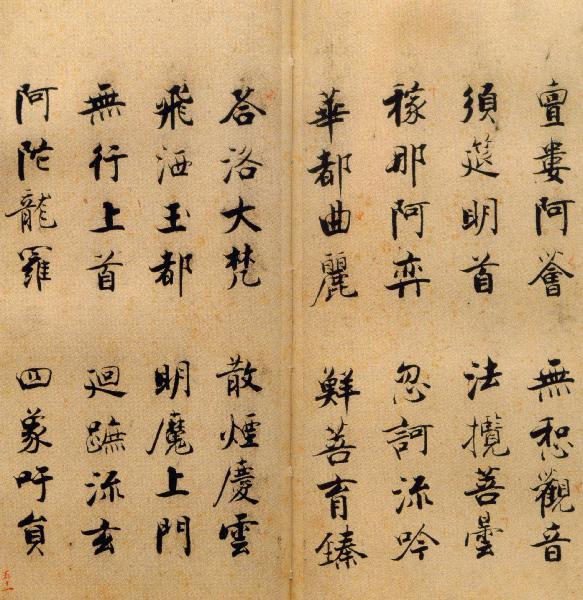 亶婁阿薈 無惒觀音
須筵明首 法攬菩曇
稼那阿弈 忽訶流吟
華都曲麗 鮮菩育臻
答洛大梵 散煙慶雲
飛洒玉都 明魔上門
無行上首 迴蹠流玄
阿陁龍羅 四象吁員